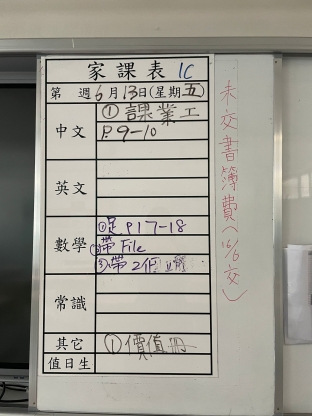 家課表 1C
第 週 6月13日(星期五)
中文 ①課業工
P.9-10
英文
數學 ①足 P17-18
②帶 File
③帶 2B
常識
其它 ①價值冊
值日生
未交書簿費(16/6交)